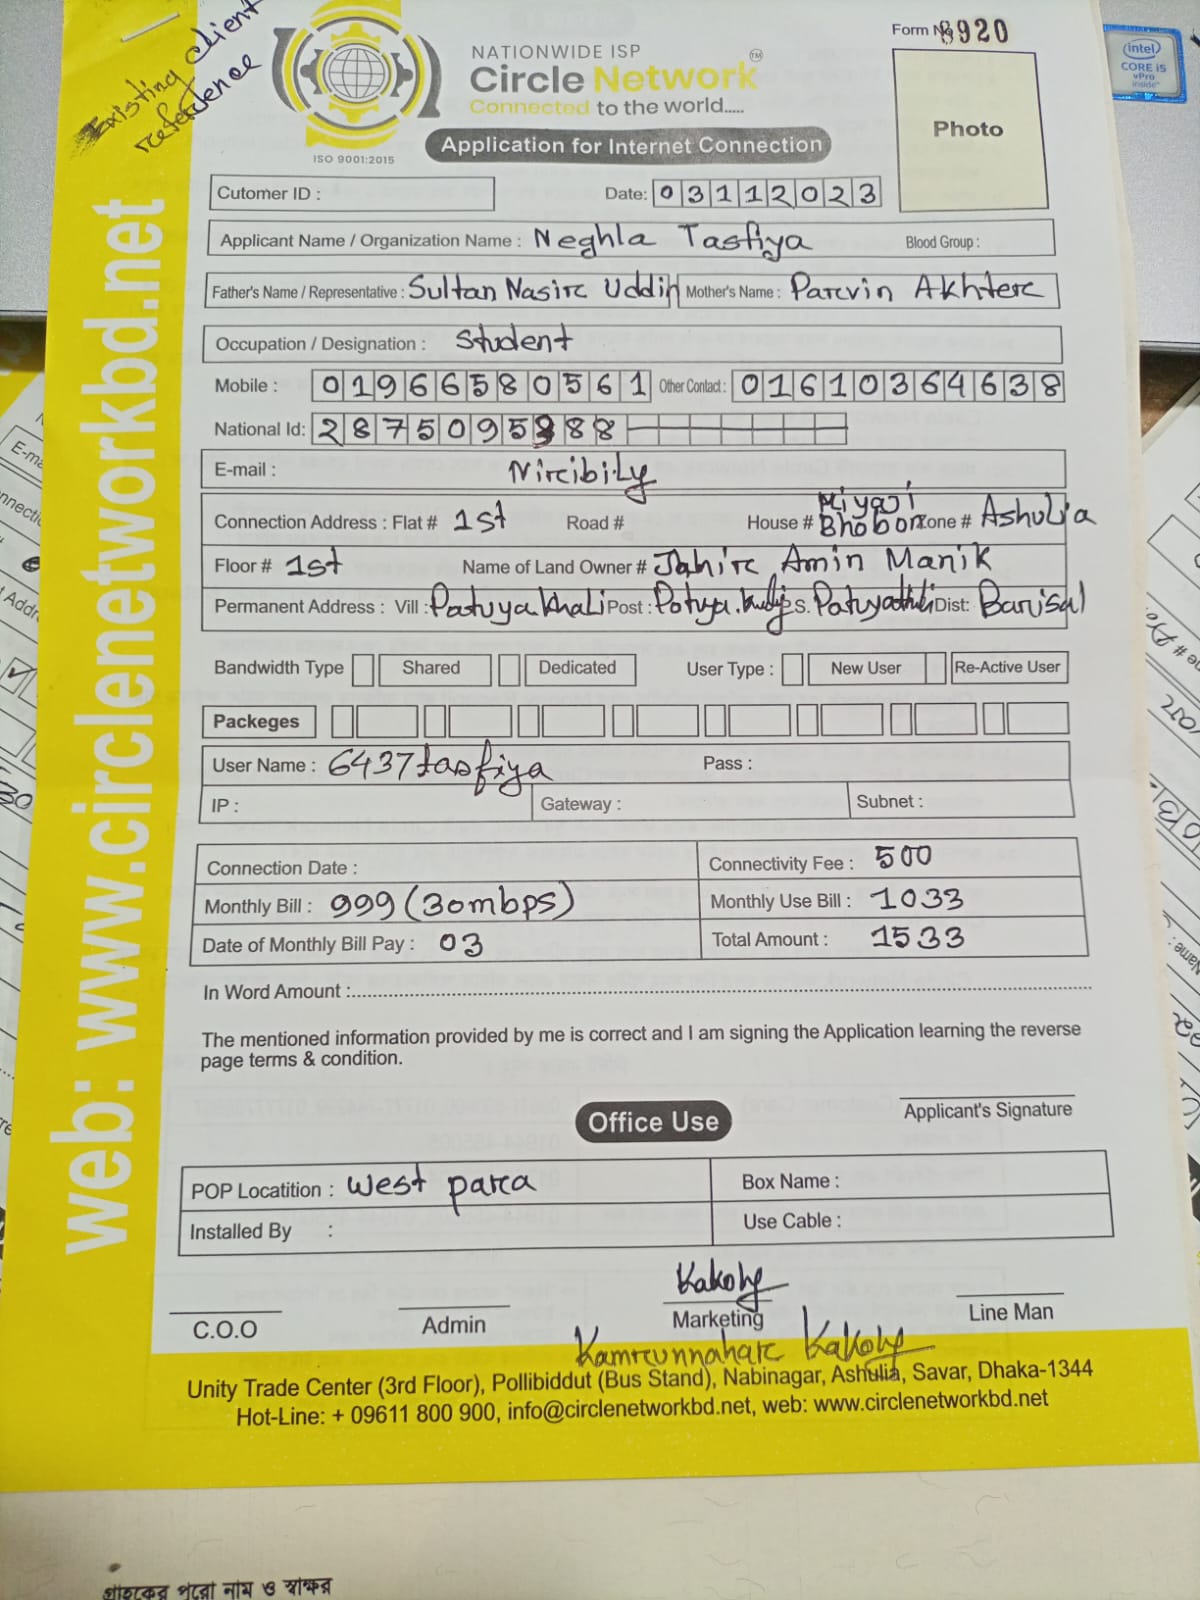 Existing client
reference
Form No 8920
NATIONWIDE ISP
Circle Network
TM
Connected to the world.....
ISO 9001:2015
Application for Internet Connection
Photo
intel
CORE i5
vPro
inside
Cutomer ID :
Date: 03112023
Applicant Name / Organization Name : Neghla Tasfiya Blood Group :
Father's Name / Representative : Sultan Nasir Uddin Mother's Name : Parvin Akhter
Occupation / Designation : Student
Mobile : 01966580561 Other Contact : 01610364638
National Id: 2875095388
E-mail : Niribily
Connection Address : Flat # 1st Road # House # Miyaji Bhobon Zone # Ashulia
Floor # 1st Name of Land Owner # Jahir Amin Manik
Permanent Address : Vill : Patuyakhali Post : P.S. Dist: Barisal
Bandwidth Type Shared Dedicated User Type : New User Re-Active User
Packeges
User Name : 6437tasfiya Pass :
IP : Gateway : Subnet :
Connection Date : Connectivity Fee : 500
Monthly Bill : 999 (30mbps) Monthly Use Bill : 1033
Date of Monthly Bill Pay : 03 Total Amount : 1533
In Word Amount :
The mentioned information provided by me is correct and I am signing the Application learning the reverse
page terms & condition.
Applicant's Signature
Office Use
POP Locatition : West para Box Name :
Installed By : Use Cable :
Kakoly
C.O.O Admin Marketing Line Man
Kamrunnahar Kakoly
Unity Trade Center (3rd Floor), Pollibiddut (Bus Stand), Nabinagar, Ashulia, Savar, Dhaka-1344
Hot-Line: + 09611 800 900, info@circlenetworkbd.net, web: www.circlenetworkbd.net
web: www.circlenetworkbd.net
গ্রাহকের পুরো নাম ও স্বাক্ষর